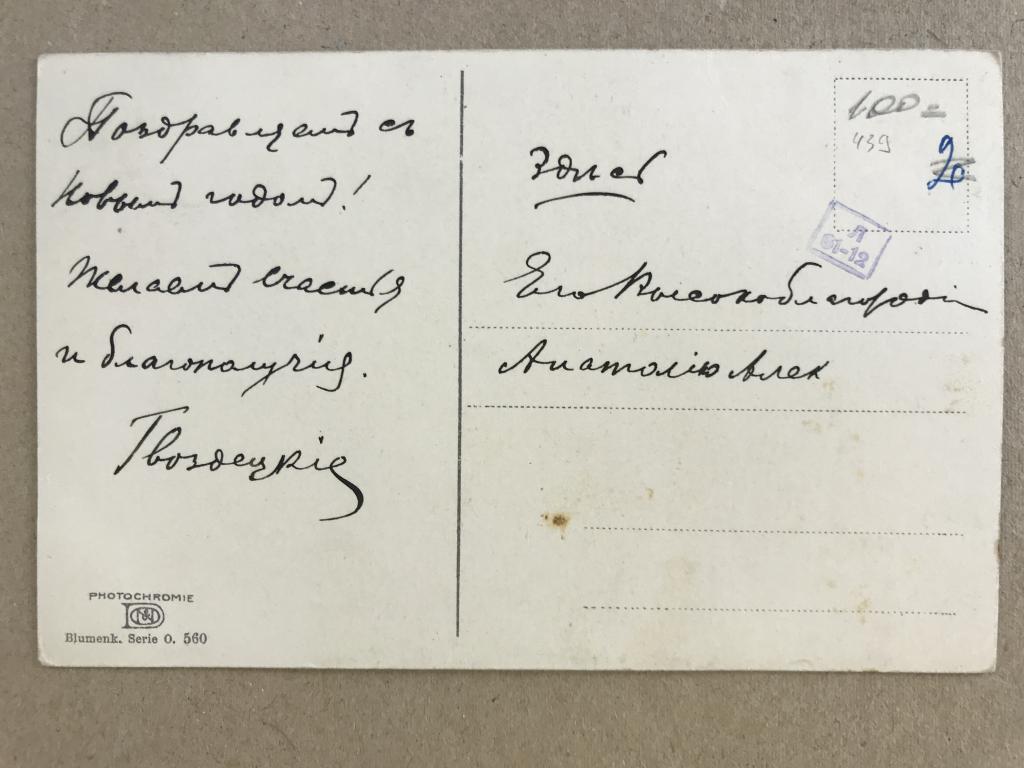 Поздравляемъ съ
Новымъ годомъ!
Желаемъ счастья
и благополучія.
Гвоздецкіе
PHOTOCHROMIE
Blumenk. Serie O. 560
Здѣсь
Его Высокоблагородію
Анатолію Алек
100=
439
20
Л
61-12